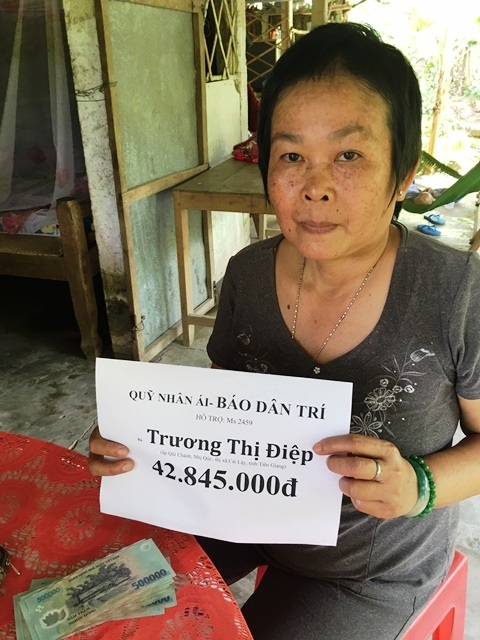 QUỸ NHÂN ÁI- BÁO DÂN TRÍ
HỖ TRỢ: Ms 2459
Trương Thị Điệp
(ấp Quí Chánh, Nhị Quý, thị xã Cai Lậy, tỉnh Tiền Giang)
42.845.000đ
500000
500000